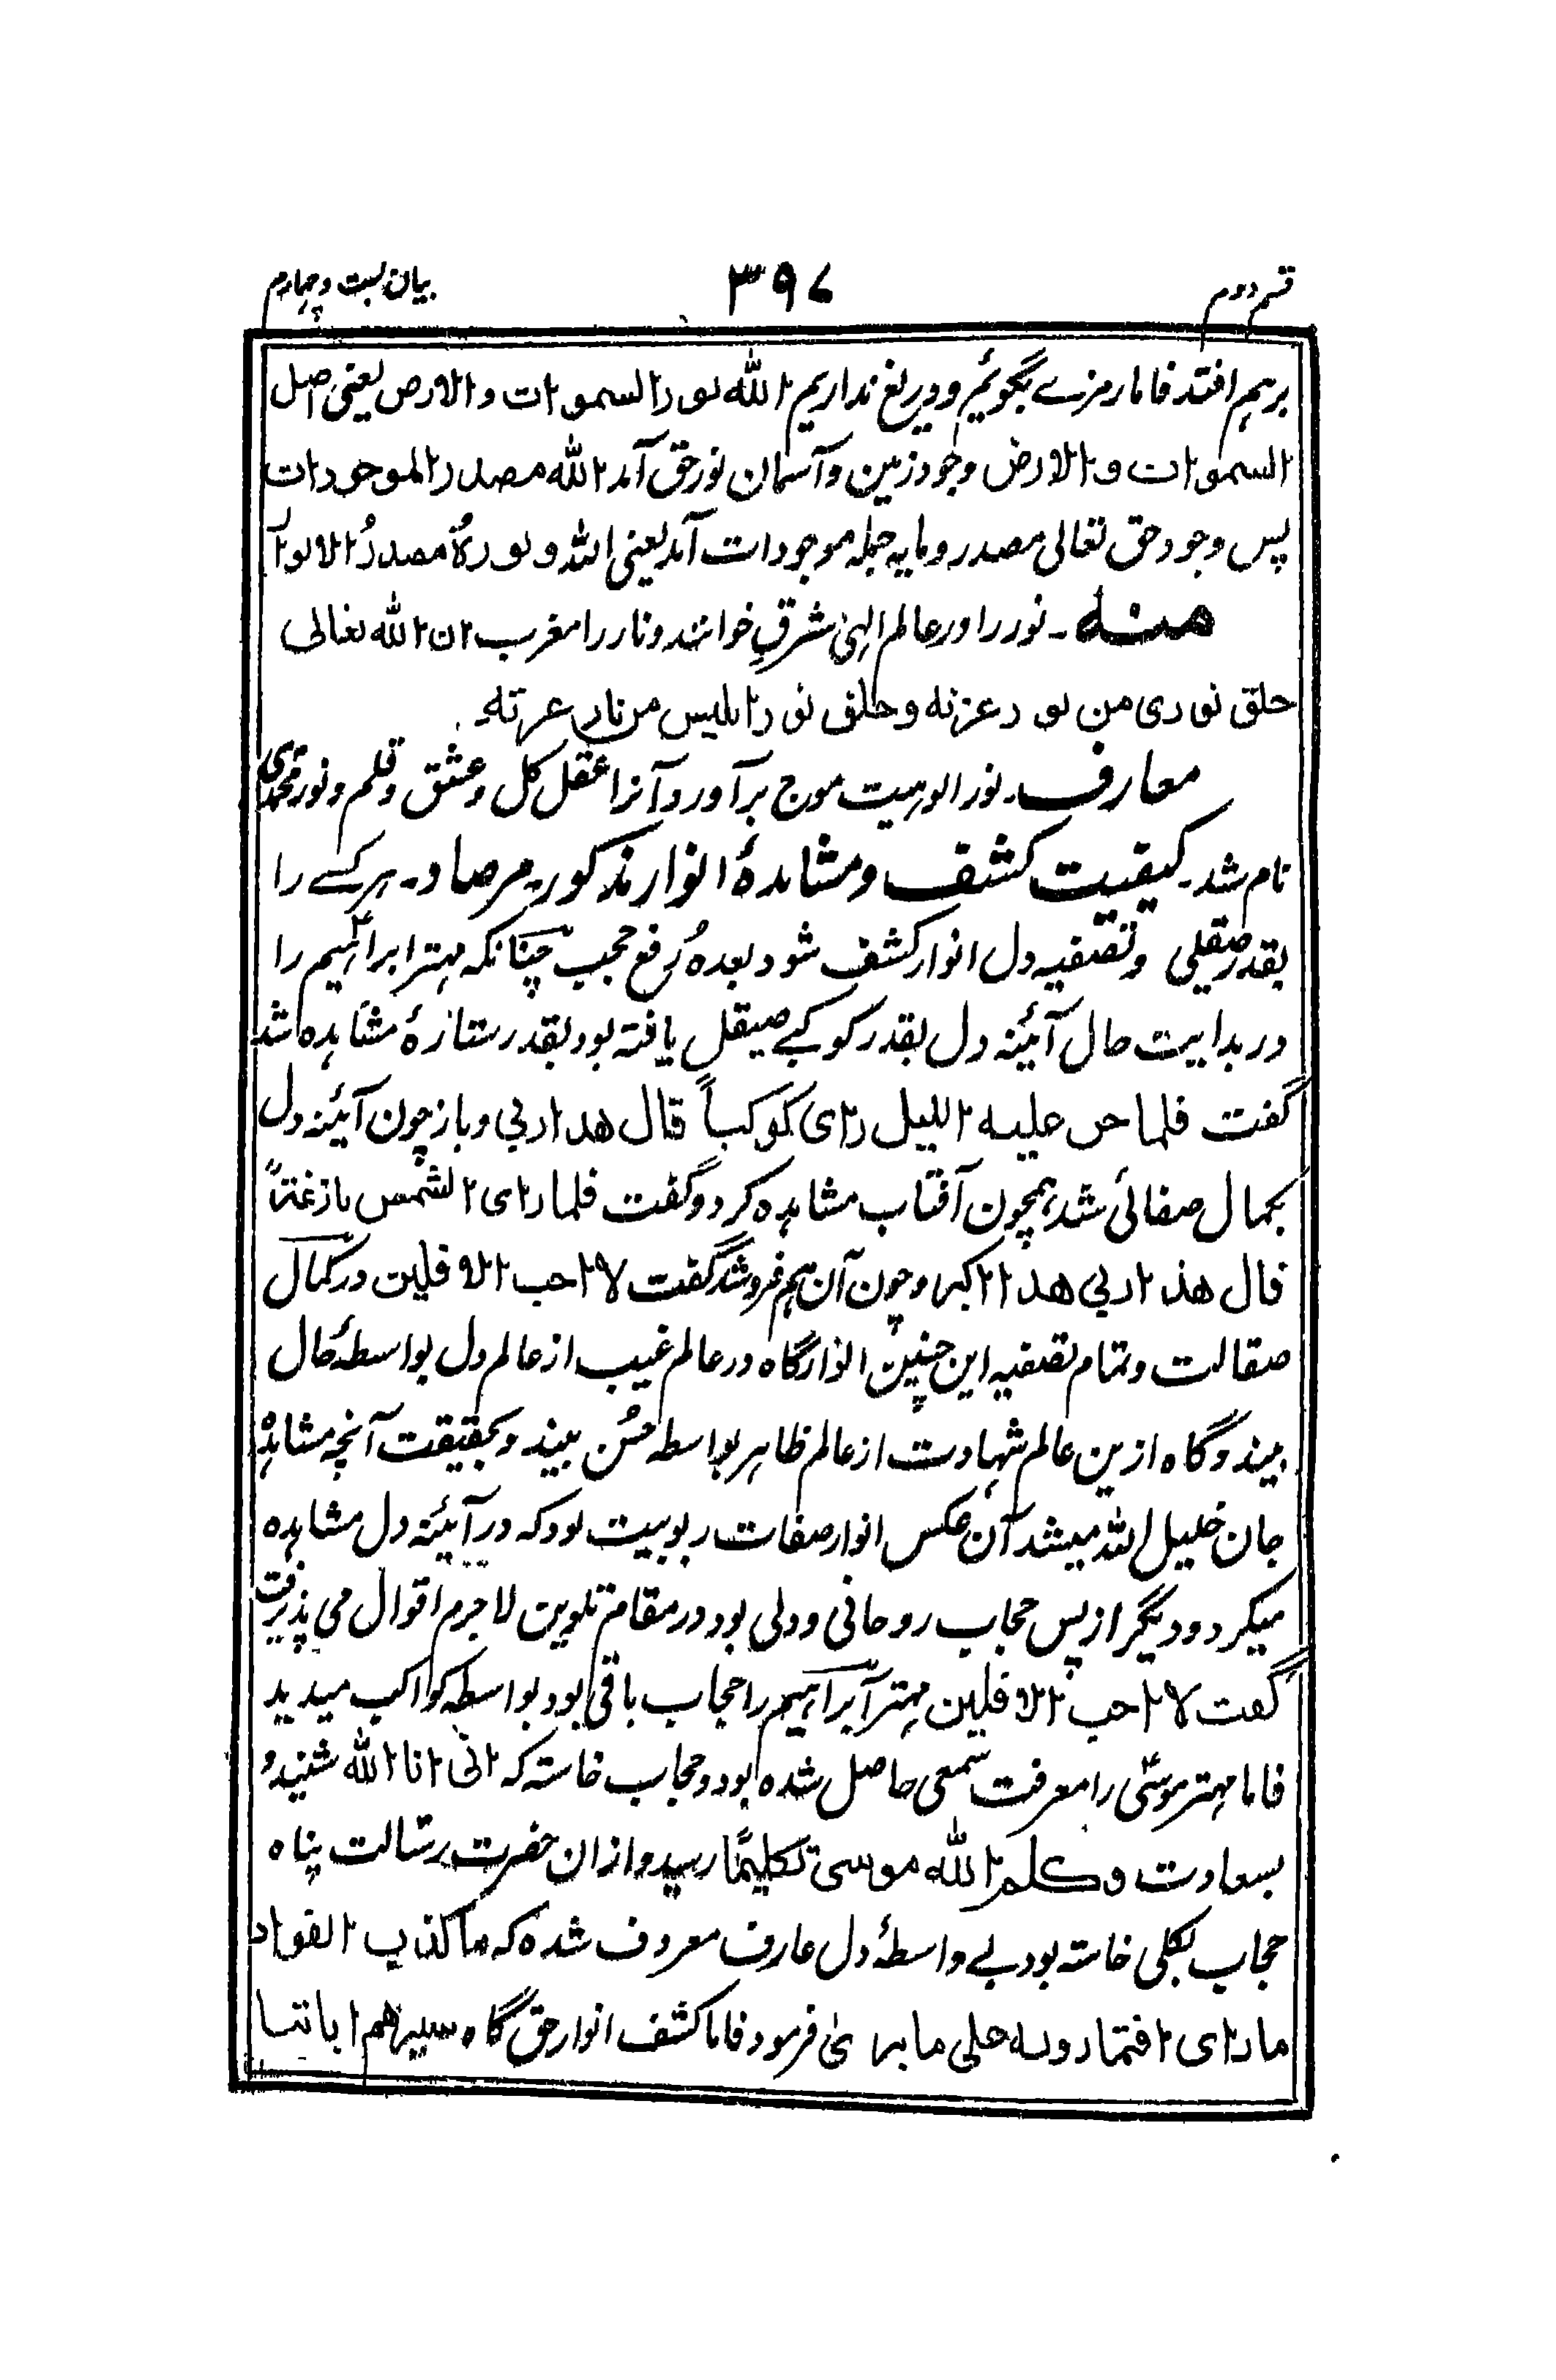 قسم دوم
۳۹۷
بیان بست و چہارم
برہم افتد فاما رمزے بگوئیم و دریغ نداریم الله نور السموات والارض یعنی اصل
السموات والارض وجود زمین و آسمان نور حق آمد الله مصدر الموجودات
پس وجود حق تعالی مصدر و مایہ جملہ موجودات آمد یعنی اللہ و نورہٗ مصدرُ الانوار
منه ۔ نور را در عالم الہٰی مشرقِ خوانند و نار را مغرب ان الله تعالی
خلق نوری من نور عزته و خلق نور ابلیس من نار عزته ۔
معارف ۔ نور الوہیت موج برآورد آنرا عقل کل و عشق و قلم و نور محمدی
نام شد ۔ کیفیت کشف و مشاہدۂ انوار مذکورہ مرصاد ۔ ہر کسے را
بقدر صیقلی و تصفیہ دل انوار کشف شود بعدہٗ رفع حجب چنانکہ مہتر ابراہیم را
در بدایت حال آئینہ دل بقدر کوکبے صیقل یافتہ بود بقدر ستارۂ مشاہدہ شد
گفت فلما جن علیه اللیل رای کوکباً قال هذا ربی و باز چون آئینہ دل
بکمال صفائی شد ہمچون آفتاب مشاہدہ کرد و گفت فلما رای الشمس بازغتاً
قال هذا ربی هذا اکبر و چون آن ہم فرو شد گفت لا احب الافلین در کمال
صقالت و تمام تصفیہ این چنین انوار گاہ در عالم غیب از عالم دل بواسطۂ حال
بیند و گاہ ازین عالم شہادت از عالم ظاہر بواسطہ حس بیند و بحقیقت آنچہ مشاہدہٗ
جان خلیل اللہ میشد آن عکس انوار صفات ربوبیت بود کہ در آئینہ دل مشاہدہ
میکرد و دیگر از پس حجاب روحانی و دلی بود در مقام تلوین لا جرم اقوال می پذیرفت
گفت لا احب الافلین مہتر ابراہیم را حجاب باقی بود بواسطہ کواکب میدید
فاما مہتر موسیٰ را معرفت سمعی حاصل شدہ بود و حجاب خاستہ کہ انی انا الله شنید و
بسعادت و کلم الله موسی تکلیمًا رسید و ازان حضرت رسالت پناہ
حجاب بکلی خاستہ بود بے واسطۂ دل عارف معروف شدہ کہ ما کذب الفواد
ما رای افتمارونه علی ما یری فرمود فاما کشف انوار حق گاہ سیرهم ایاتنا